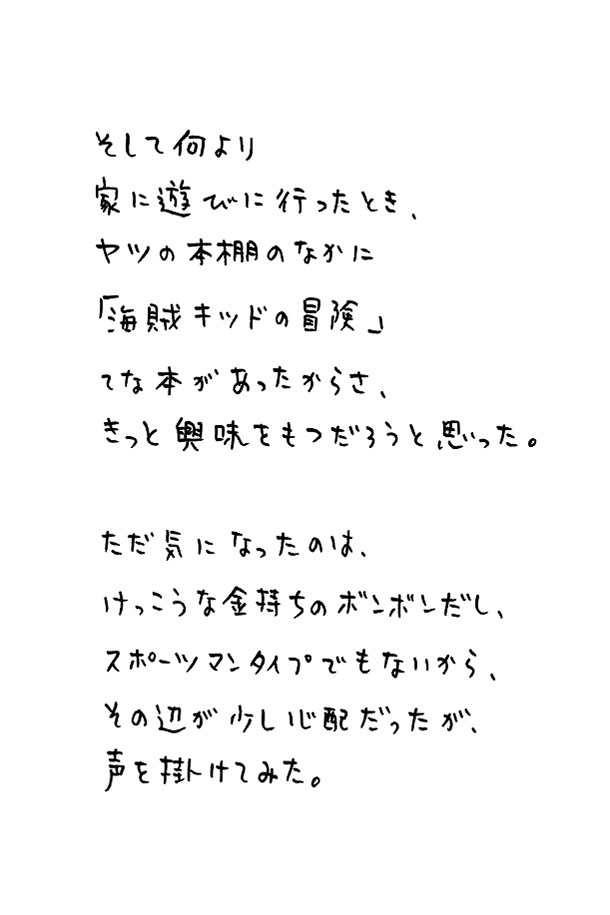 そして何より
家に遊びに行ったとき、
ヤツの本棚のなかに
「海賊キッドの冒険」
てな本があったからさ、
きっと興味をもつだろうと思った。
ただ気になったのは、
けっこうな金持ちのボンボンだし、
スポーツマンタイプでもないから、
その辺が少し心配だったが、
声を掛けてみた。